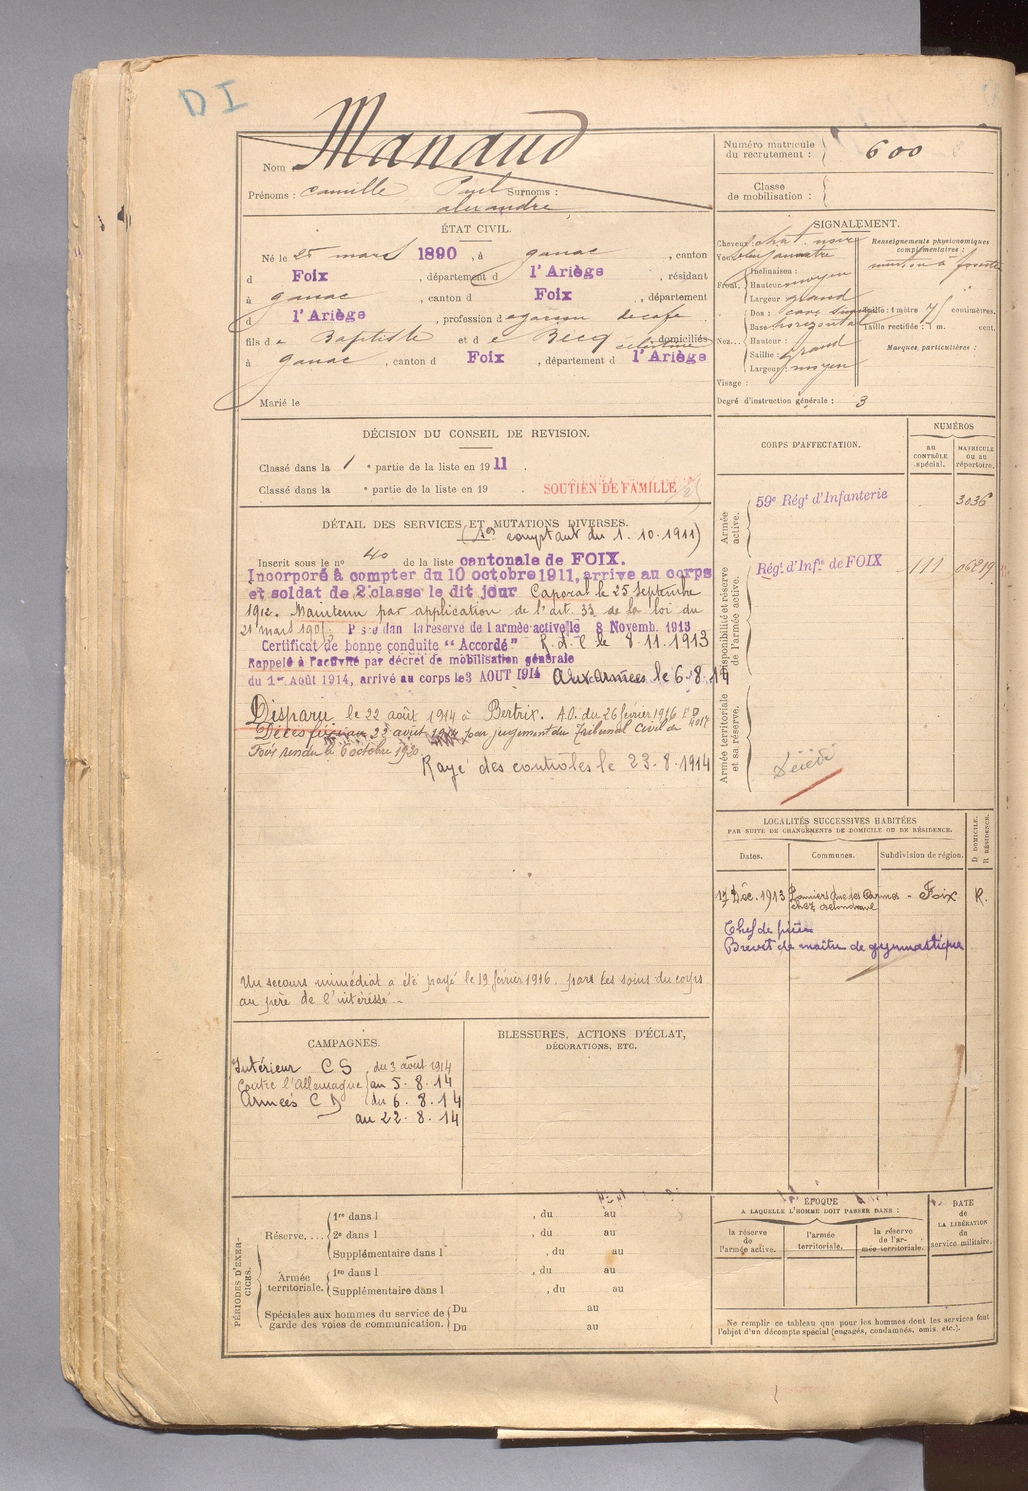 DI
Nom Manaud
Prénoms : Camille Paul Surnoms :
alexandre
Numéro matricule
du recrutement : 600
Classe
de mobilisation :
ÉTAT CIVIL.
Né le 25 mars 1890, à ganac, canton
d Foix, département d l'Ariège, résidant
à ganac, canton d Foix, département
d l'Ariège, profession de garçon de café
fils de Baptiste et de Becq domiciliés
à ganac, canton d Foix, département d l'Ariège
Marié le
SIGNALEMENT.
Cheveux : chat. noir
Yeux
Front. Inclinaison :
Hauteur moyen
Largeur grand
Nez... Dos :
Base horizontal
Hauteur :
Saillie : Grand
Largeur : moyen
Visage :
Degré d'instruction générale : 3
Renseignements physionomiques
complémentaires :
menton à fossette
Taille : 1 mètre centimètres.
Taille rectifiée : 1 m. cent.
Marques particulières :
DÉCISION DU CONSEIL DE REVISION.
Classé dans la 1 e partie de la liste en 1911.
Classé dans la e partie de la liste en 19 . SOUTIEN DE FAMILLE
DÉTAIL DES SERVICES ET MUTATIONS DIVERSES.
comptant du 1.10.1911)
Inscrit sous le n° 40 de la liste cantonale de FOIX.
Incorporé à compter du 10 octobre 1911, arrive au corps
et soldat de 2e classe le dit jour Caporal le 25 septembre
1912. Maintenu par application de l'art. 33 de la loi du
21 mars 1905. Passé dans la réserve de l'armée active le 8 Novemb. 1913
Certificat de bonne conduite "Accordé" R.d.C le 8.11.1913
Rappelé à l'activité par décret de mobilisation générale
du 1er Août 1914, arrivé au corps le 3 AOUT 1914 Aux armées le 6.8.14
Disparu le 22 août 1914 à Bertrix. A.O. du 26 février 1916
Décès fixé au 22 août 1914 par jugement du Tribunal Civil de
Foix rendu le 6 octobre 1920.
Rayé des contrôles le 23.8.1914
Un secours immédiat a été payé le 19 février 1916, par les soins du corps
au père de l'intéressé.
CORPS D'AFFECTATION.
NUMÉROS
AU CONTRÔLE spécial.
MATRICULE OU AU répertoire.
Armée active.
59e Régt d'Infanterie 3036
Disponibilité et réserve de l'armée active.
Régt d'Infie de FOIX 111 06219
Armée territoriale et sa réserve.
Décédé
LOCALITÉS SUCCESSIVES HABITÉES
PAR SUITE DE CHANGEMENTS DE DOMICILE OU DE RÉSIDENCE.
Dates. Communes. Subdivision de région.
D DOMICILE.
R RÉSIDENCE.
17 Déc. 1913 Pamiers rue des Carmes - Foix R.
Chef de pièce
Brevet de maître de gymnastique
CAMPAGNES.
Intérieur CS du 3 août 1914
Contre l'Allemagne au 5.8.14
Armées CD du 6.8.14
au 22.8.14
BLESSURES, ACTIONS D'ÉCLAT,
DÉCORATIONS, ETC.
PÉRIODES D'EXERCICES.
Réserve....
1re dans l , du au
2e dans l , du au
Supplémentaire dans l , du au
Armée territoriale.
1re dans l , du au
Supplémentaire dans l , du au
Spéciales aux hommes du service de
garde des voies de communication.
Du au
Du au
ÉPOQUE
A LAQUELLE L'HOMME DOIT PASSER DANS :
la réserve de l'armée active.
l'armée territoriale.
la réserve de l'armée territoriale.
DATE
de
LA LIBÉRATION
du
service militaire.
Ne remplir ce tableau que pour les hommes dont les services font
l'objet d'un décompte spécial (engagés, condamnés, omis, etc.).